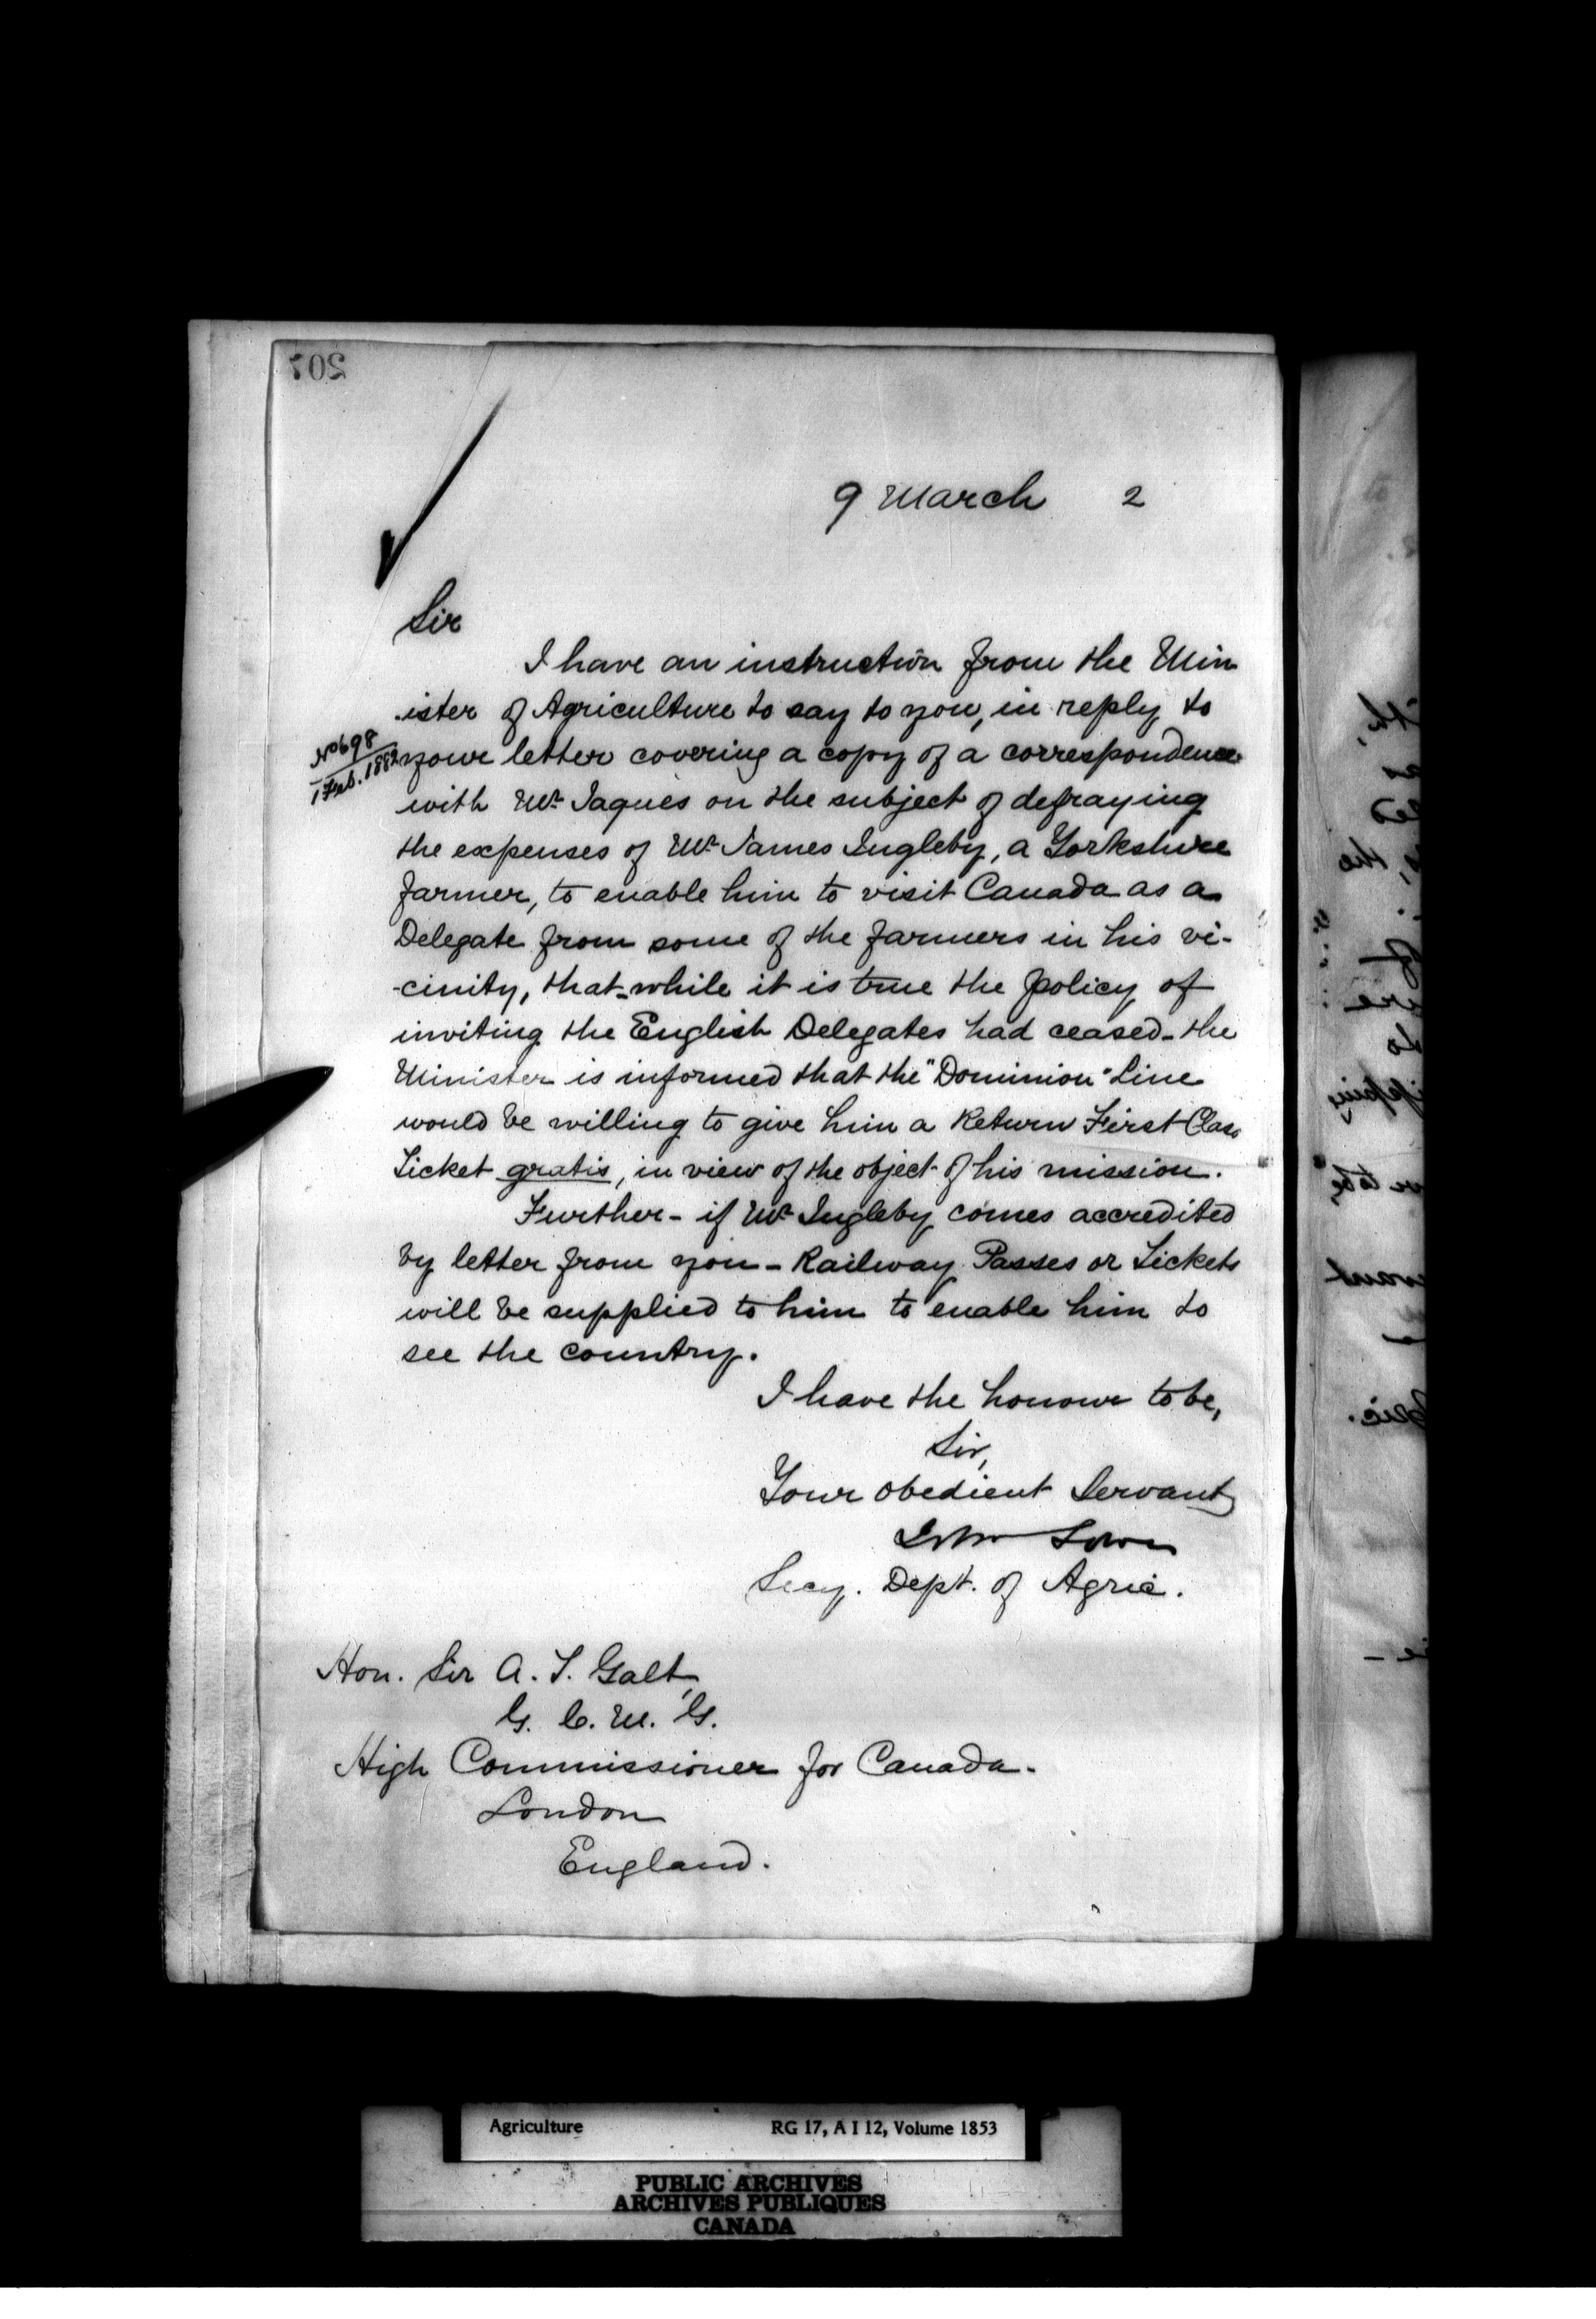 207
9 March 2
Sir
I have an instruction from the Min
ister of Agriculture to say to you, in reply to
No 698
1 Feb. 1882
your letter covering a copy of a correspondence
with Mr. Jaques on the subject of defraying
the expenses of Mr. James Ingleby, a Yorkshire
farmer, to enable him to visit Canada as a
Delegate from some of the farmers in his vi-
-cinity, that - while it is true the policy of
inviting the English Delegates had ceased - the
Minister is informed that the "Dominion" Line
would be willing to give him a Return First Class
Ticket gratis, in view of the object of his mission.
Further - if Mr. Ingleby comes accredited
by letter from you - Railway Passes or Tickets
will be supplied to him to enable him to
see the country.
I have the honour to be,
Sir,
Your obedient Servant
John Lowe
Secy. Dept. of Agric.
Hon. Sir A. T. Galt,
G. C. M. G.
High Commissioner for Canada.
London
England.
Agriculture RG 17, A I 12, Volume 1853
PUBLIC ARCHIVES
ARCHIVES PUBLIQUES
CANADA